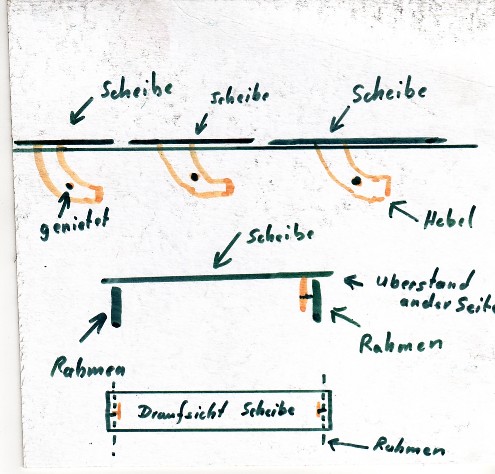 Scheibe
Scheibe
Scheibe
genietet
Hebel
Scheibe
überstand
an der Seite
Rahmen
Rahmen
Draufsicht Scheibe
Rahmen